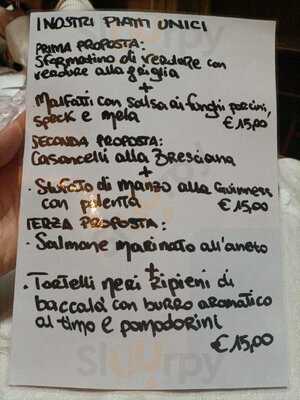 I NOSTRI PIATTI UNICI
PRIMA PROPOSTA:
Sformatino di verdure con
verdure alla griglia
+
Malfatti con salsa ai funghi porcini,
speck e mela
€ 15,00
SECONDA PROPOSTA:
Casoncelli alla Bresciana
+
· Stufato di manzo alla Guinness
con polenta
€ 15,00
TERZA PROPOSTA:
· Salmone marinato all'aneto
+
· Tortelli neri ripieni di
baccalà con burro aromatico
al timo e pomodorini
€ 15,00
Sluurpy